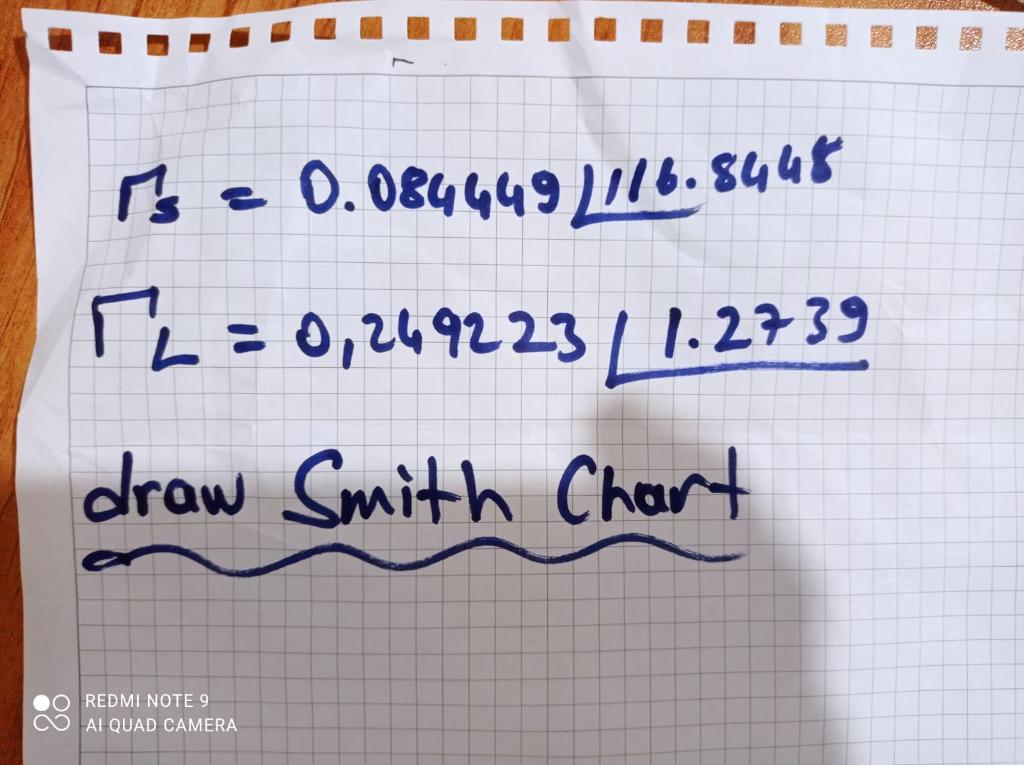 Γs = 0.084449∠116.8448
ΓL = 0,249223∠1.2739
draw Smith Chart
REDMI NOTE 9
AI QUAD CAMERA